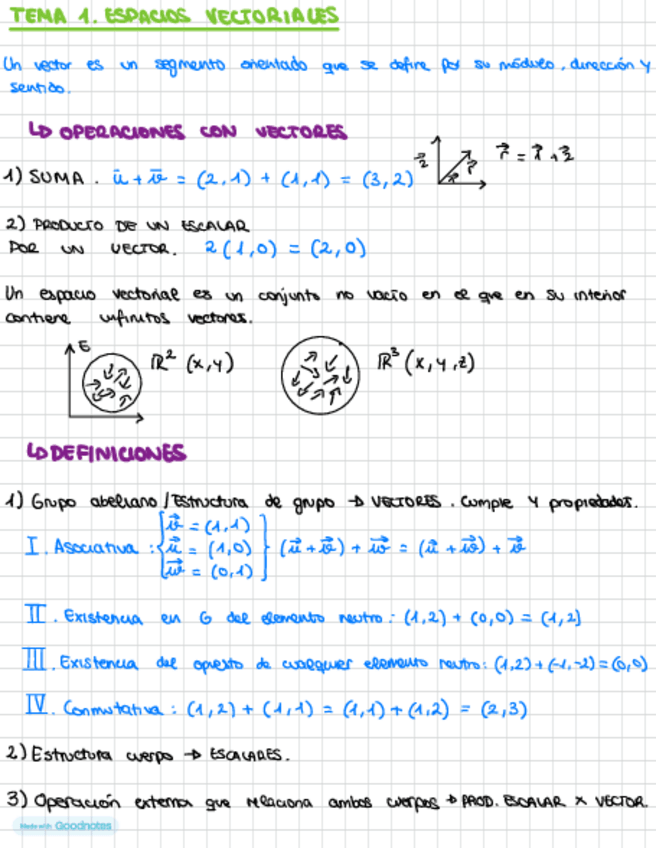 TEMA 1. ESPACIOS VECTORIALES
Un vector es un segmento orientado que se define por su módulo, dirección y
sentido.
↳ OPERACIONES CON VECTORES
1) SUMA. ū + v̄ = (2,1) + (1,1) = (3,2)
2) PRODUCTO DE UN ESCALAR
POR UN VECTOR. 2(1,0) = (2,0)
Un espacio vectorial es un conjunto no vacío en el que en su interior
contiene infinitos vectores.
E
ℝ² (x,y)
ℝ³ (x,y,z)
↳ DEFINICIONES
1) Grupo abeliano / Estructura de grupo → VECTORES. Cumple 4 propiedades.
v⃗ = (1,1)
I. Asociativa: u⃗ = (1,0) (u⃗ + v⃗) + w⃗ = (u⃗ + w⃗) + v⃗
w⃗ = (0,1)
II. Existencia en G del elemento neutro: (1,2) + (0,0) = (1,2)
III. Existencia del opuesto de cualquier elemento neutro: (1,2) + (-1,-2) = (0,0)
IV. Conmutativa: (1,2) + (1,1) = (1,1) + (1,2) = (2,3)
2) Estructura cuerpo → ESCALARES.
3) Operación externa que relaciona ambos cuerpos → PROD. ESCALAR x VECTOR.
Made with Goodnotes